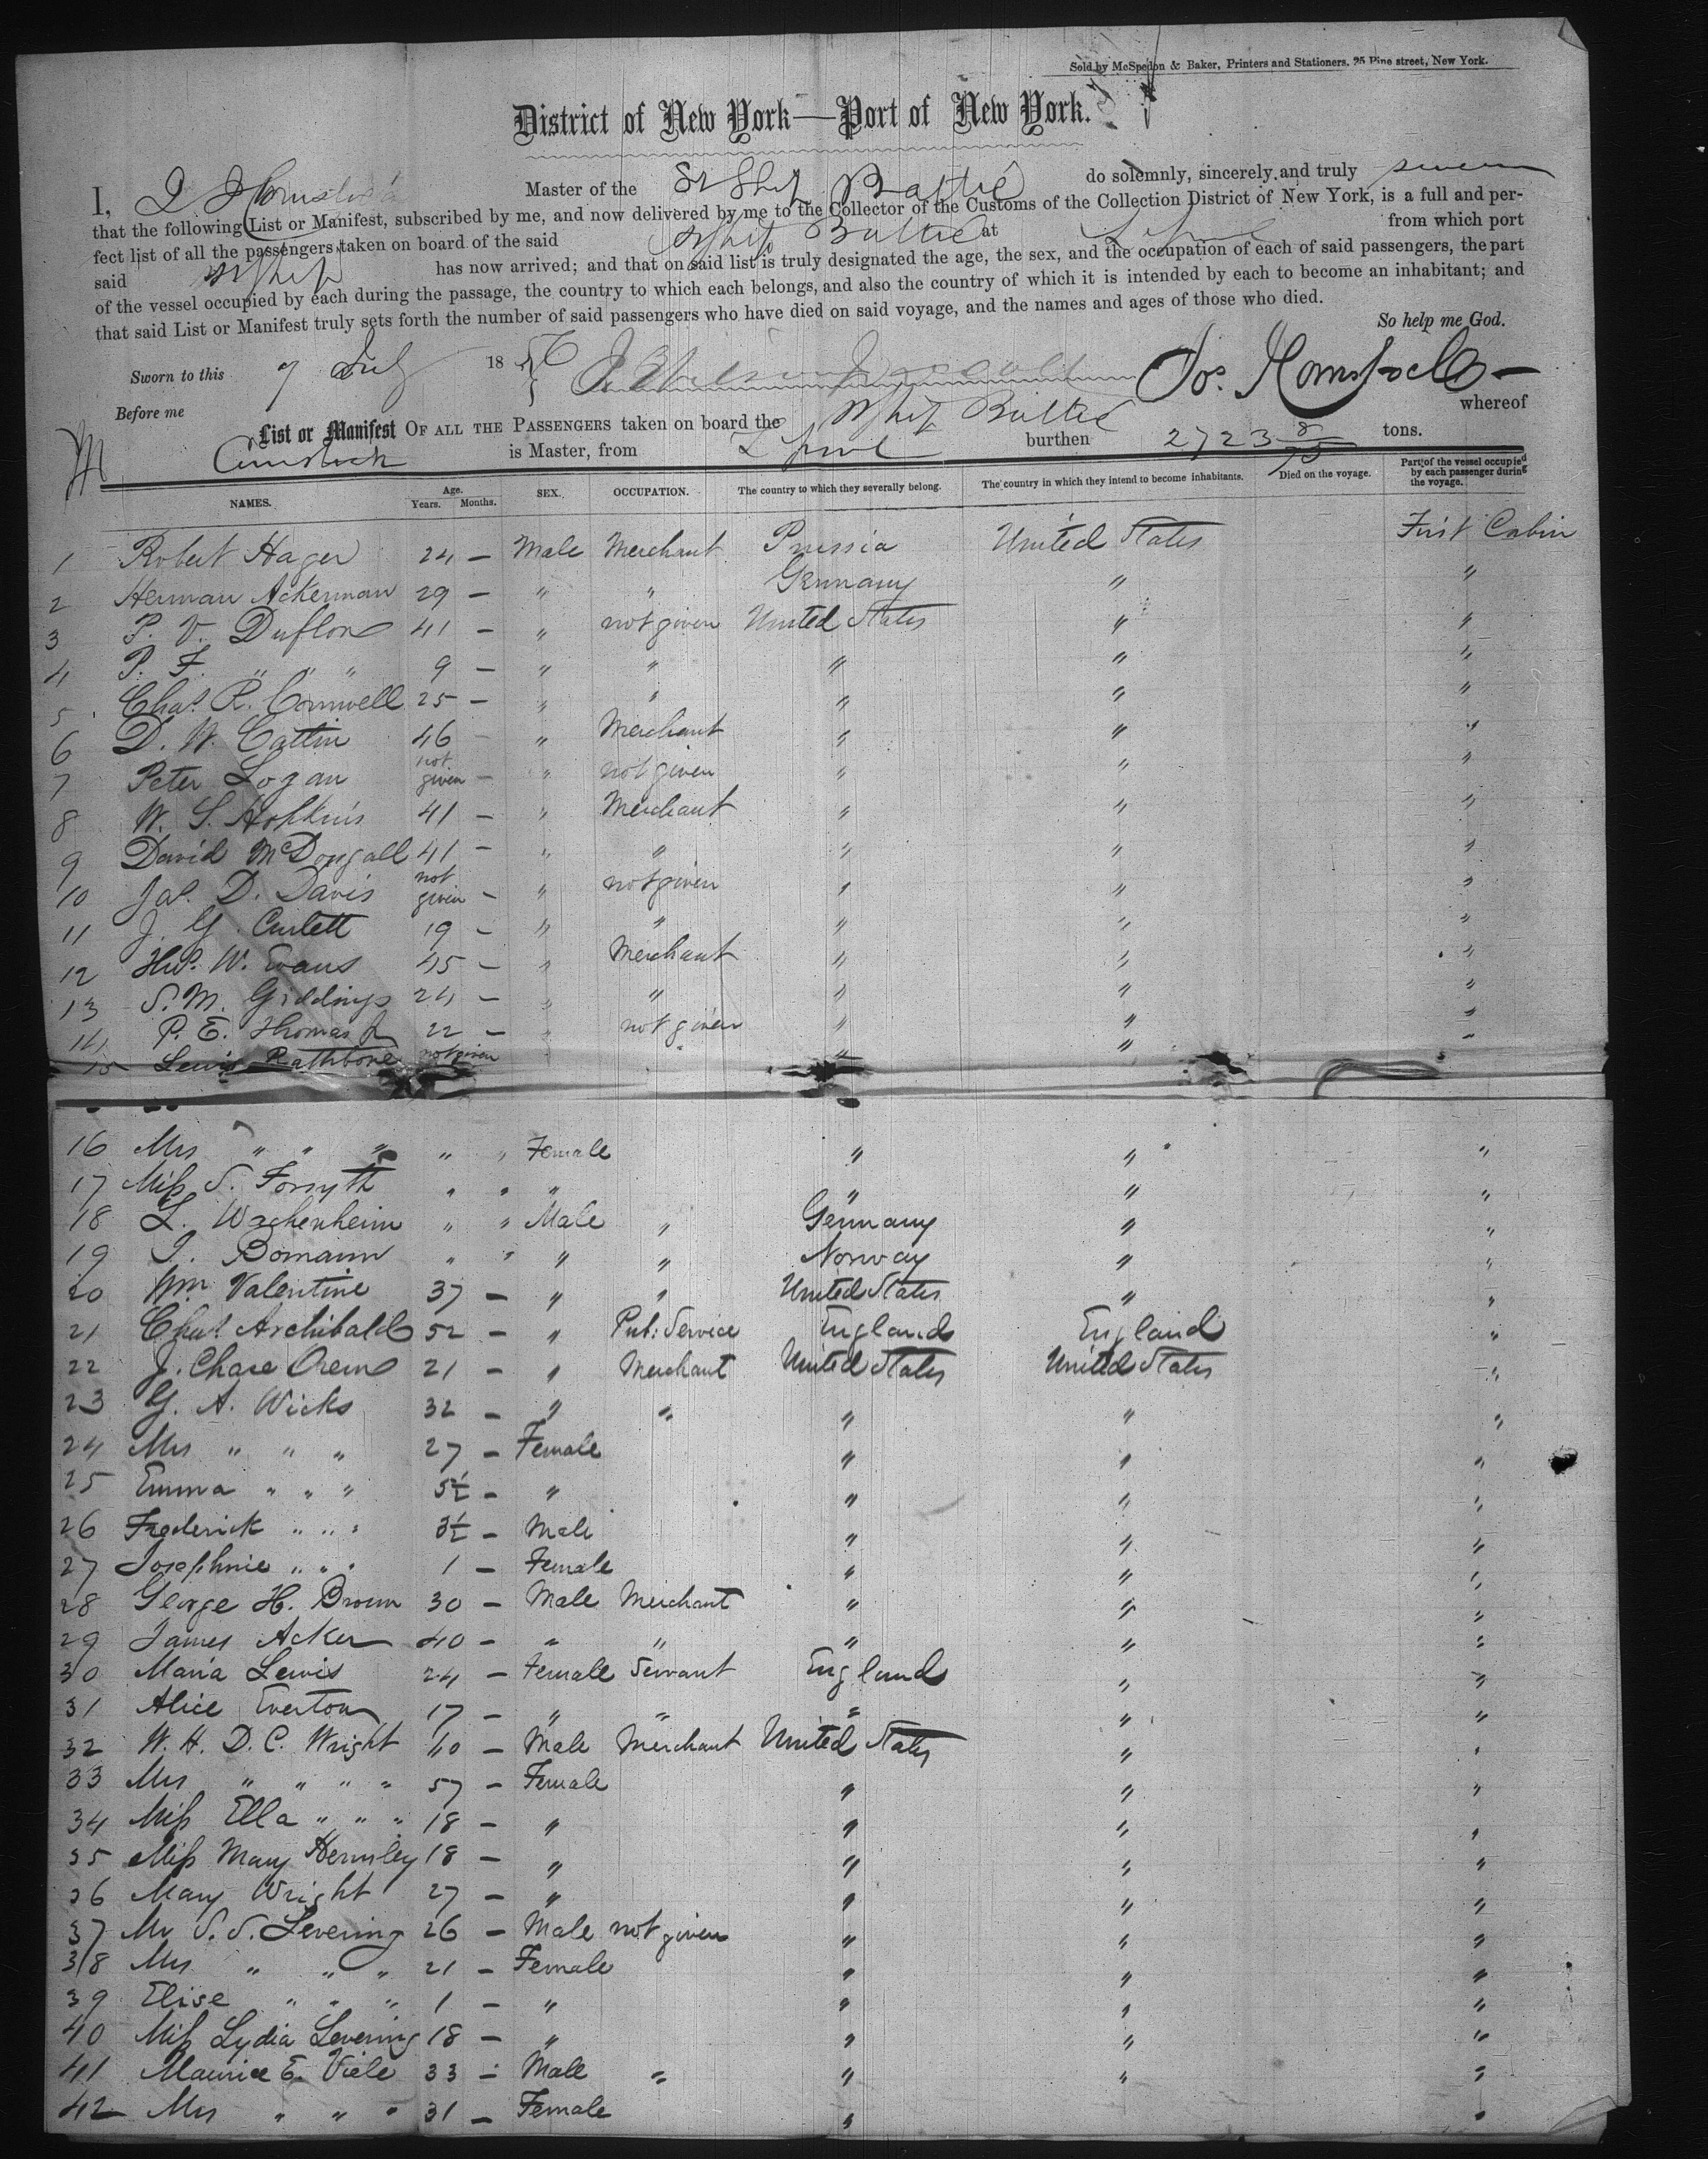 Sold by McSpedon & Baker, Printers and Stationers, 25 Pine street, New York.
District of New York—Port of New York.
I, Master of the St Ship Baltic do solemnly, sincerely and truly swear
that the following List or Manifest, subscribed by me, and now delivered by me to the Collector of the Customs of the Collection District of New York, is a full and per-
fect list of all the passengers taken on board of the said Baltic at L'pool from which port
said has now arrived; and that on said list is truly designated the age, the sex, and the occupation of each of said passengers, the part
of the vessel occupied by each during the passage, the country to which each belongs, and also the country of which it is intended by each to become an inhabitant; and
that said List or Manifest truly sets forth the number of said passengers who have died on said voyage, and the names and ages of those who died.
So help me God.
Sworn to this 7 July 1856 Jos. J Comstock
Before me
List or Manifest OF ALL THE PASSENGERS taken on board the Baltic whereof
Comstock is Master, from L'pool burthen 2723 tons.
NAMES. Age. Years. Months. SEX. OCCUPATION. The country to which they severally belong. The country in which they intend to become inhabitants. Died on the voyage. Part of the vessel occupied by each passenger during the voyage.
1 Robert Hager 24 – Male Merchant Prussia United States First Cabin
2 Herman Ackerman 29 – " " Germany " "
3 P. V. Duflon 41 – " not given United States " "
4 P. F. " " " 9 – " " " " "
5 Chas. R. Cornwell 25 – " " " " "
6 D. W. Catlin 46 – " Merchant " " "
7 Peter Logan not given – " not given " " "
8 W. S. Hopkins 41 – " Merchant " " "
9 David McDougall 41 – " " " " "
10 Jas. D. Davis not given – " not given " " "
11 J. G. Curlett 19 – " " " " "
12 W. Evans 45 – " Merchant " " "
13 S. M. Giddings 24 – " " " " "
14 P. E. Thomas Jr 22 – " not given " " "
15 Lewis Rathbone not given " " " "
16 Mrs " " " " " Female " " "
17 Miss S. Forsyth " " " " " "
18 L. Wachenheim " " Male " Germany " "
19 Bomann " " " " Norway " "
20 Wm Valentine 37 – " " United States " "
21 Chas. Archibald 52 – " Pub: Service England England "
22 J. Chase Orem 21 – " Merchant United States United States "
23 G. A. Wicks 32 – " " " " "
24 Mrs " " " 27 – Female " " "
25 Emma " " " 5½ – " " " "
26 Frederick " " " 3½ – Male " " "
27 Josephine " " " 1 – Female " " "
28 George H. Brown 30 – Male Merchant " " "
29 James Acker 40 – " " " " "
30 Maria Lewis 24 – Female Servant England " "
31 Alice Everton 17 – " " " " "
32 W. H. D. C. Wright – Male Merchant United States " "
33 Mrs " " " " 57 – Female " " "
34 Miss Ella " " " 18 – " " " "
35 Miss Mary Hemsley 18 – " " " "
36 Mary Wright 27 – " " " "
37 Mr S. S. Levering 26 – Male not given " " "
38 Mrs " " " 21 – Female " " "
39 Elise " " " 1 – " " " "
40 Miss Lydia Levering 18 – " " " "
41 Maurice E. Viele 33 – Male " " " "
42 Mrs " " " 31 – Female " "